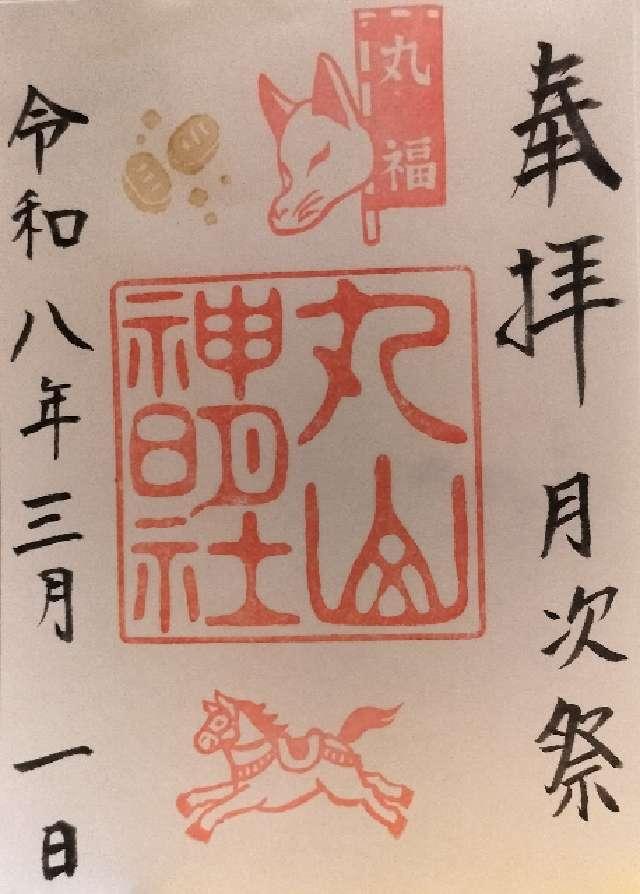 奉拝 月次祭
丸福
丸山
神明社
令和八年三月 一日